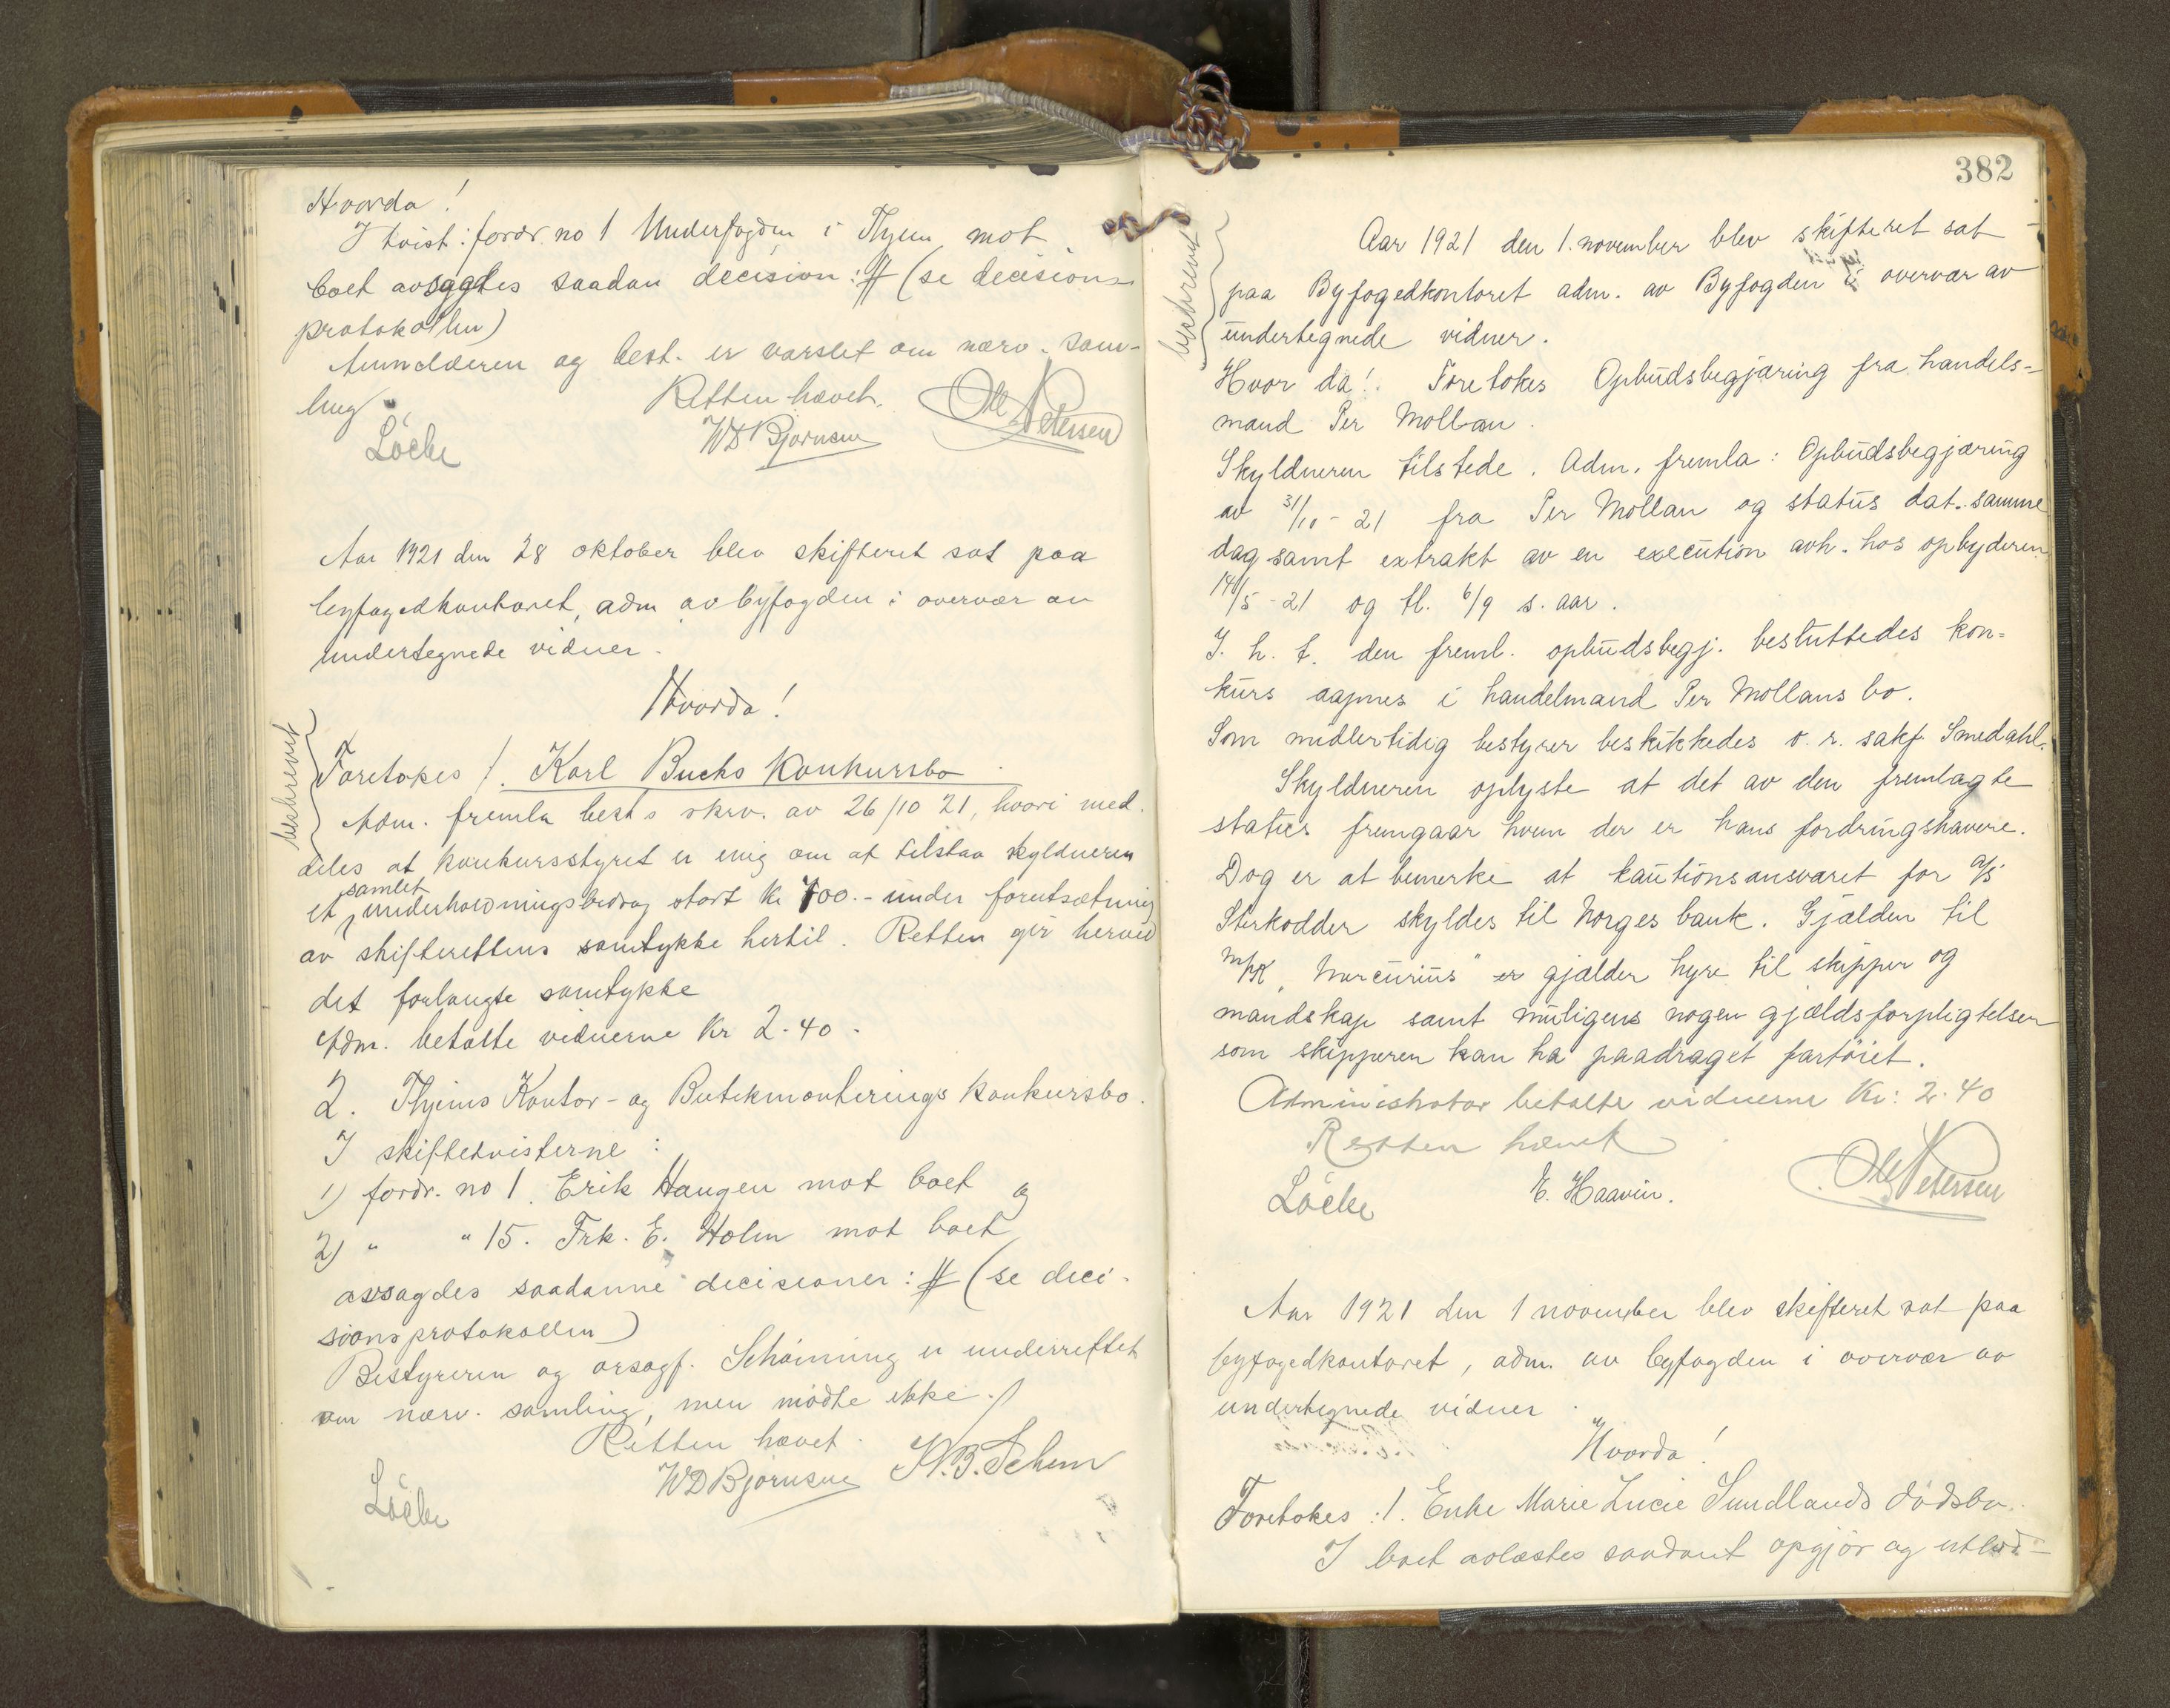 Hvorda!
I tvist: fordr. no 1 Underfogden i Thjem mot
boet avsagdes saadan decision: # (se decisions
protokollen)
Anmelderen og best. er varslet om nærv. sam-
ling
Retten hævet.
Löcke WD Bjørnsen Ole Petersen
Aar 1921 den 28 oktober blev skifteret sat paa
byfogedkontoret, adm av byfogden i overvær av
undertegnede vidner.
Hvorda!
beskrevet
Foretokes 1. Karl Bucks Konkursbo
Adm. fremla best's skrv. av 26/10 21, hvori med-
deles at konkursstyret er enig om at tilstaa skyldneren
samlet
et underholdningsbidrag stort kr 700.- under forutsætning
av skifterettens samtykke hertil. Retten gir herved
det forlangte samtykke
Adm. betalte vidnerne Kr 2.40.
2. Thjems Kontor- og Butikmonterings Konkursbo.
I skiftetvisterne:
1) fordr. no 1. Erik Haugen mot boet og
2) " " 15. Frk. E. Holm mot boet
avsagdes saadanne decisioner: # (se deci-
sionsprotokollen)
Bestyreren og orsagf. Schøinning er underrettet
om nærv. samling, men mødte ikke.
Retten hævet.
Löcke WD Bjørnsen
382
beskrevet
Aar 1921 den 1. november blev skifteret sat
paa Byfogedkontoret adm. av Byfogden i overvær av
undertegnede vidner.
Hvor da! Foretokes Opbudsbegjæring fra handels-
mand Per Mollan.
Skyldneren tilstede. Adm. fremla: Opbudsbegjæring
av 31/10-21 fra Per Mollan og status dat. samme
dag samt extrakt av en execution avh. hos opbyderen
14/5-21 og tl. 6/9 s. aar.
I. h. t. den freml. opbudsbegj. besluttedes kon-
kurs aapnes i handelmand Per Mollans bo.
Som midlertidig bestyrer beskikkedes o. r. sakf. Smedahl.
Skyldneren oplyste at det av den fremlagte
status fremgaar hvem der er hans fordringshavere.
Dog er at bemerke at kautionsansvaret for A/S
Sterkodder skyldes til Norges bank. Gjælden til
M/K "Mercurius" er gjælder hyre til skipper og
mandskap samt muligens nogen gjældsforpligtelser
som skipperen kan ha paadraget fartöiet.
Administrator betalte vidnerne Kr: 2.40
Retten hævet
Löcke E. Haavin. Ole Petersen
Aar 1921 den 1 november blev skifteret sat paa
byfogedkontoret, adm. av byfogden i overvær av
undertegnede vidner.
Hvorda!
Foretokes: 1. Enke Marie Lucie Sundlands dødsbo.
I boet avlæstes saadant opgjør og utlod-